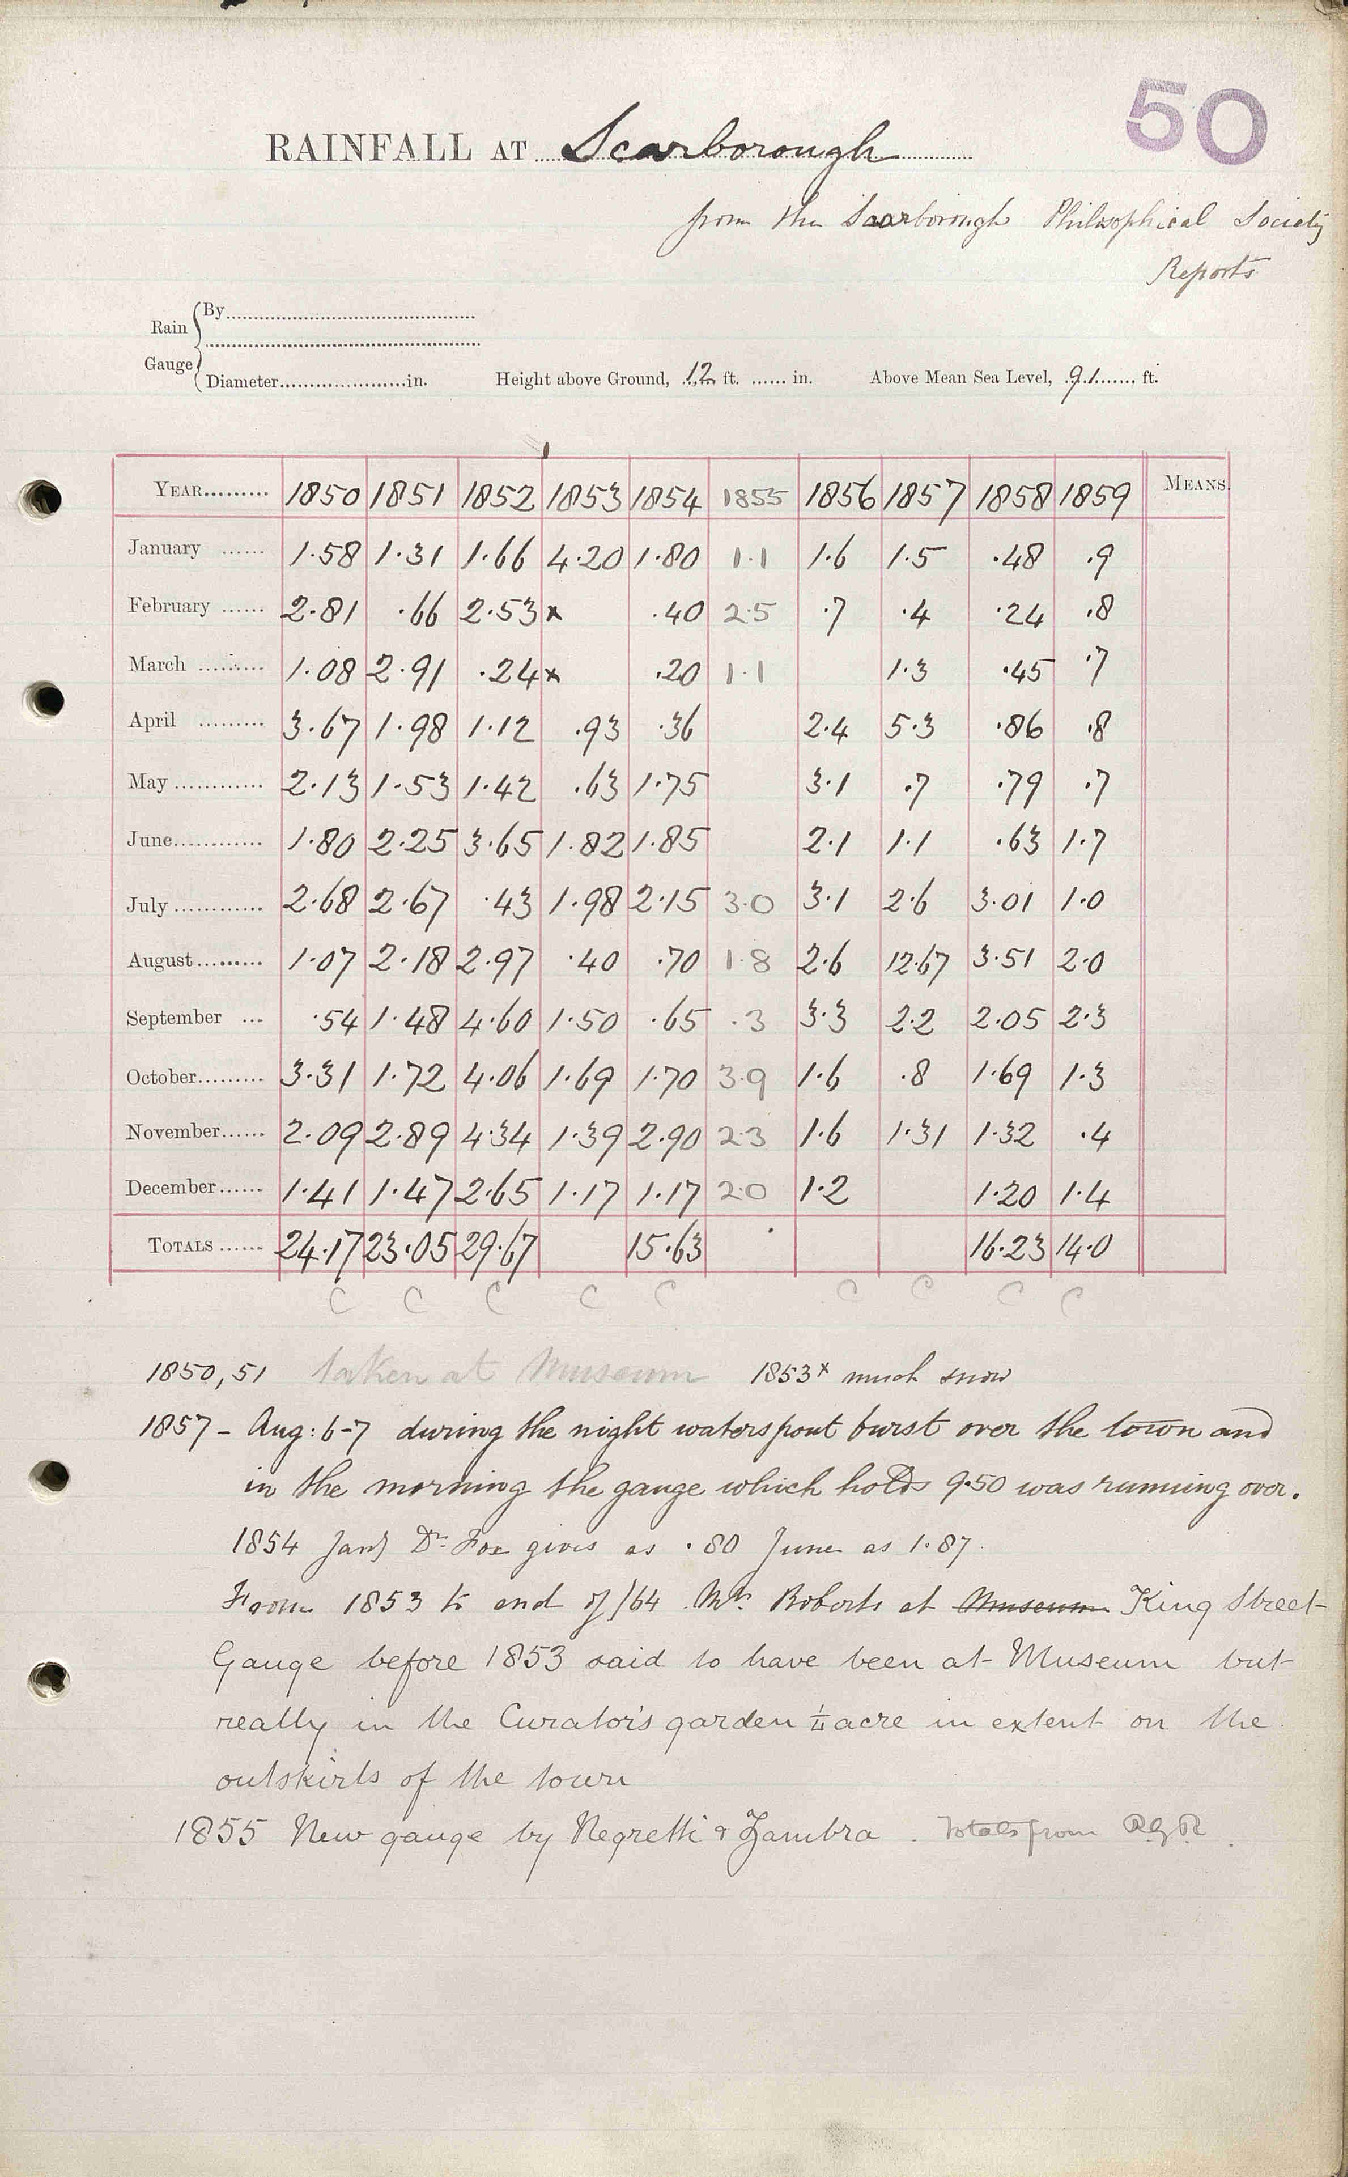 50
RAINFALL AT Scarborough
from the Scarborough Philosophical Society
Reports
Rain Gauge { By
Diameter in. Height above Ground, 12 ft. in. Above Mean Sea Level, 91 ft.
YEAR 1850 1851 1852 1853 1854 1855 1856 1857 1858 1859 MEANS.
January 1.58 1.31 1.66 4.20 1.80 1.1 1.6 1.5 .48 .9
February 2.81 .66 2.53 x .40 2.5 .7 .4 .24 .8
March 1.08 2.91 .24 x .20 1.1 1.3 .45 .7
April 3.67 1.98 1.12 .93 .36 2.4 5.3 .86 .8
May 2.13 1.53 1.42 .63 1.75 3.1 .7 .79 .7
June 1.80 2.25 3.65 1.82 1.85 2.1 1.1 .63 1.7
July 2.68 2.67 .43 1.98 2.15 3.0 3.1 2.6 3.01 1.0
August 1.07 2.18 2.97 .40 .70 1.8 2.6 12.67 3.51 2.0
September .54 1.48 4.60 1.50 .65 .3 3.3 2.2 2.05 2.3
October 3.31 1.72 4.06 1.69 1.70 3.9 1.6 .8 1.69 1.3
November 2.09 2.89 4.34 1.39 2.90 2.3 1.6 1.31 1.32 .4
December 1.41 1.47 2.65 1.17 1.17 2.0 1.2 1.20 1.4
TOTALS 24.17 23.05 29.67 15.63 16.23 14.0
C C C C C C C C C
1850, 51 taken at Museum 1853x much snow
1857 - Aug: 6-7 during the night waterspout burst over the town and
in the morning the gauge which holds 9.50 was running over.
1854 Jany Dr. Fox gives as .80 June as 1.87.
From 1853 to end of /64 Mr. Roberts at Museum King Street
Gauge before 1853 said to have been at Museum but
really in the Curator's garden 1/4 acre in extent on the
outskirts of the town
1855 New gauge by Negretti & Zambra. Totals from